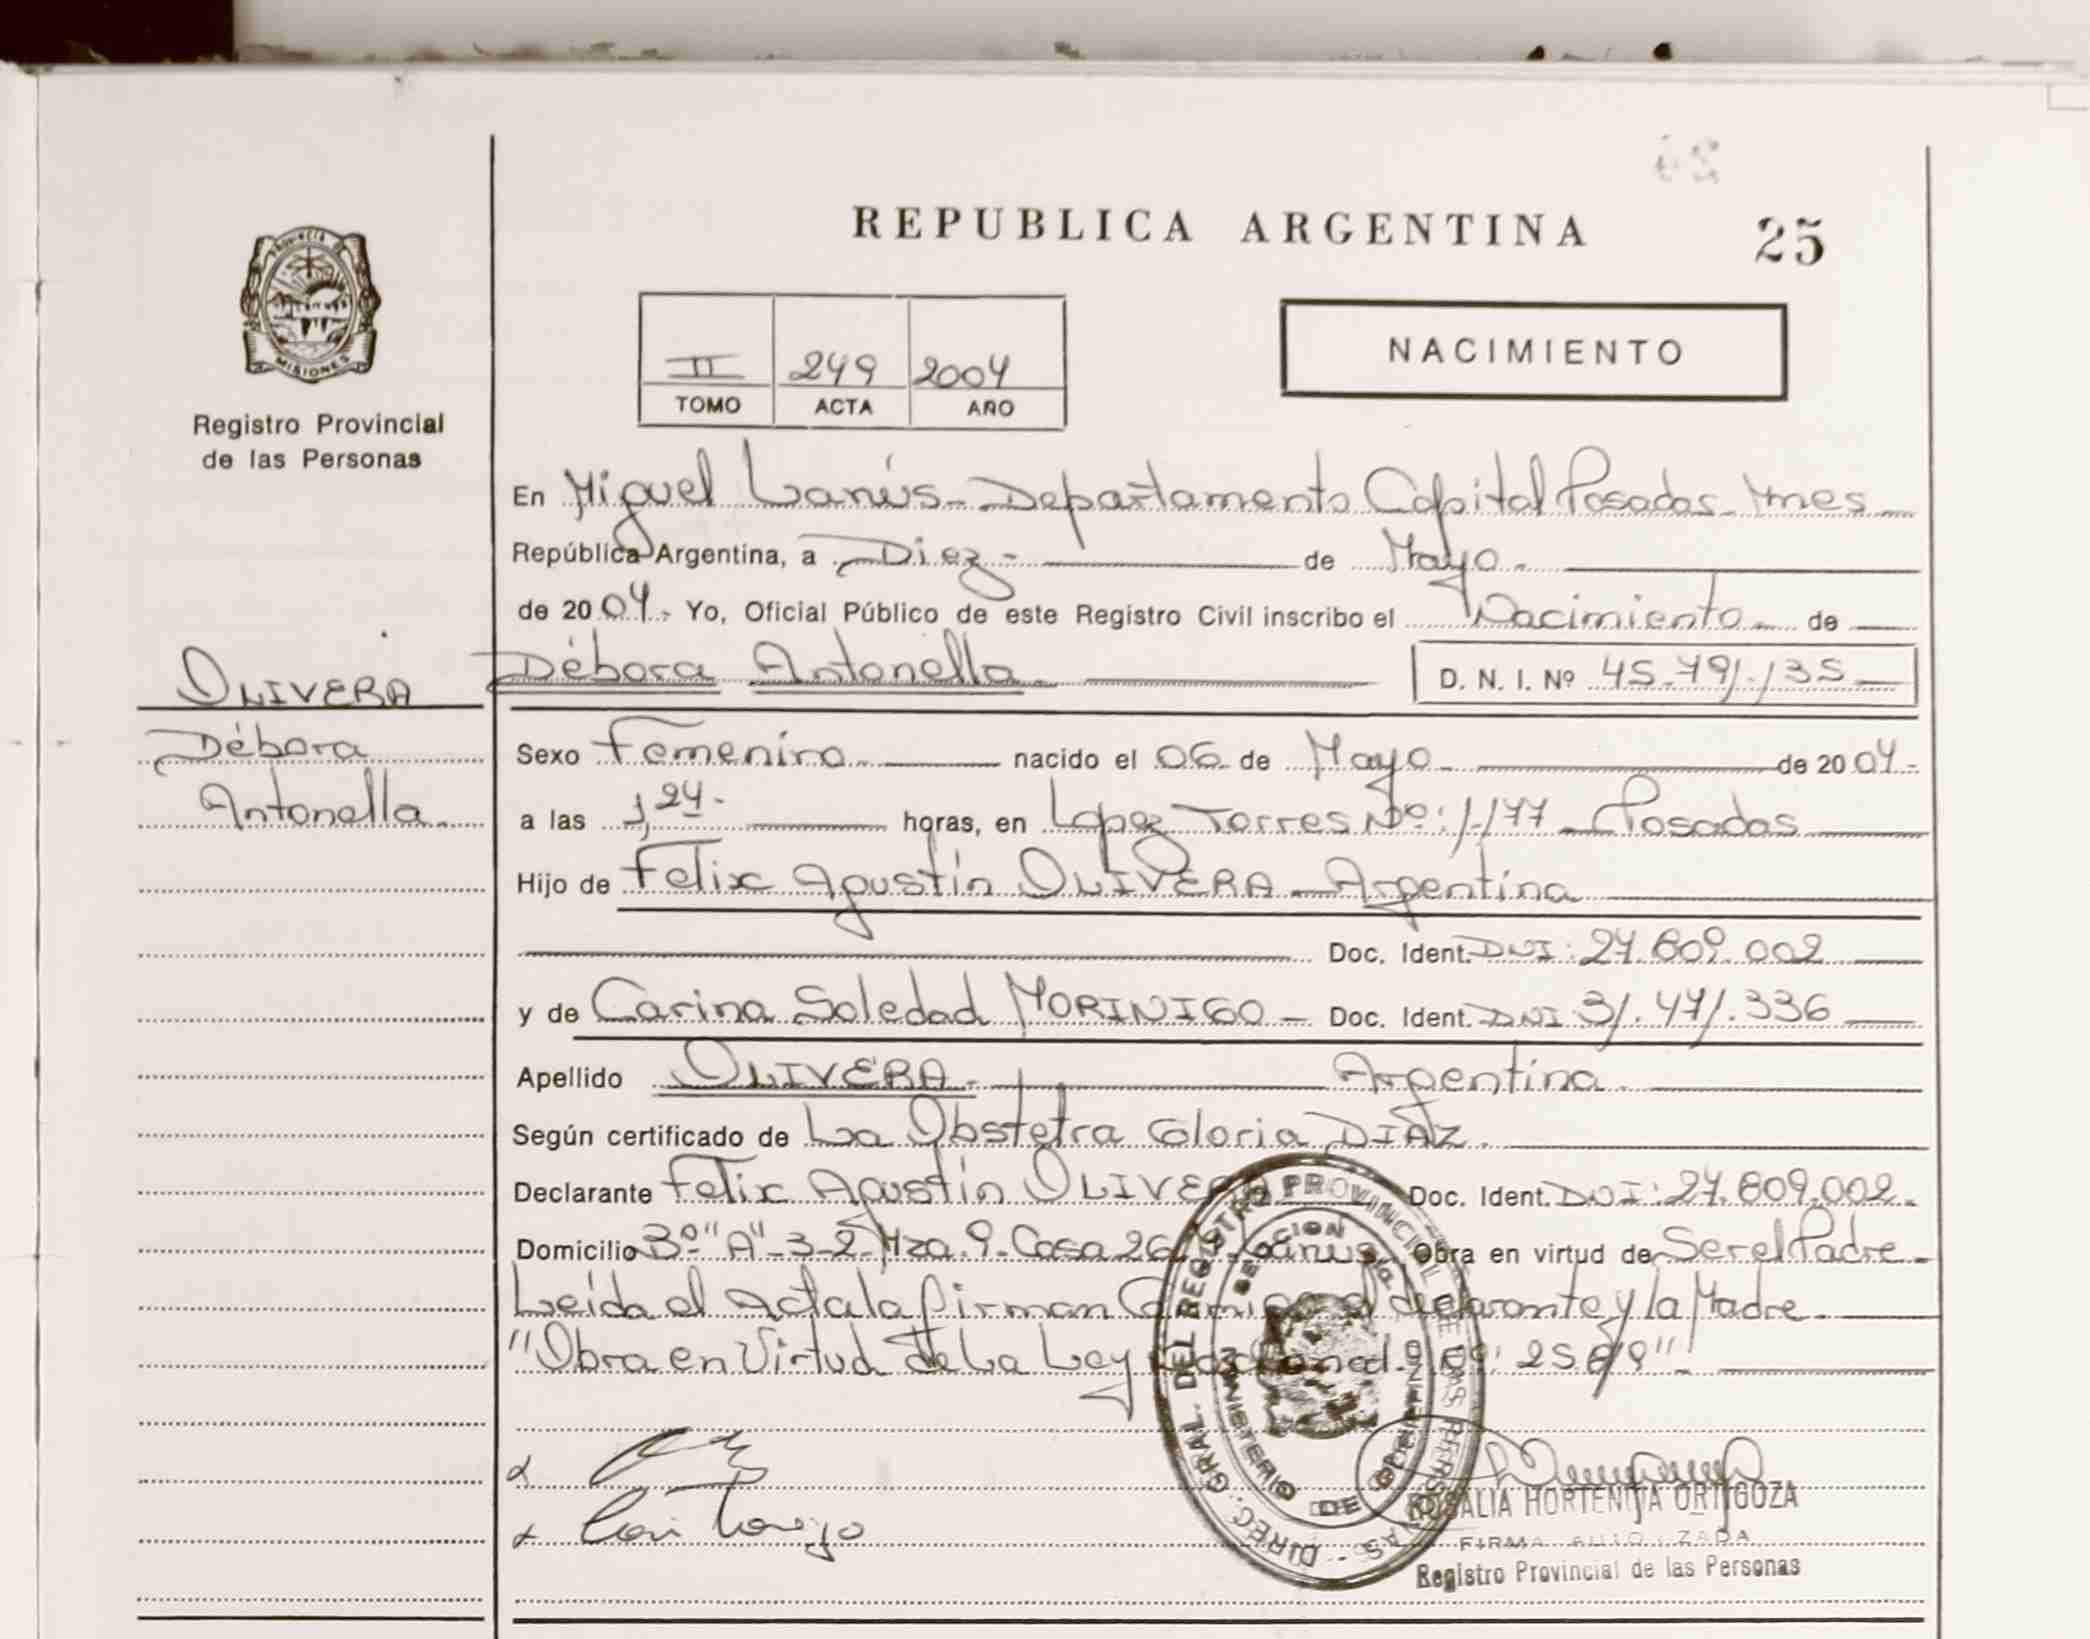 REPUBLICA ARGENTINA
25
PROVINCIA DE
MISIONES
Registro Provincial
de las Personas
II 249 2004
TOMO ACTA AÑO
NACIMIENTO
En Miguel Lanús - Departamento Capital Posadas - Mnes
República Argentina, a Diez - de Mayo -
de 2004 - Yo, Oficial Público de este Registro Civil inscribo el Nacimiento - de
OLIVERA
Débora
Antonella
Débora Antonella
D. N. I. Nº 45.791.135
Sexo Femenino nacido el 06 de Mayo de 2004 -
a las 1,24 - horas, en Lopez Torres Nº: 1.177 - Posadas
Hijo de Felix Agustín OLIVERA - Argentina
Doc. Ident. DNI: 27.809.002
y de Carina Soledad MORINIGO - Doc. Ident. DNI 31.471.336
Apellido OLIVERA - Argentina
Según certificado de La Obstetra Gloria DIAZ.
Declarante Felix Agustín OLIVERA Doc. Ident. DNI: 27.809.002 -
Domicilio 3º "A" - 3-2 Mza. 9 - Casa 26 Lanús Obra en virtud de Ser el Padre -
Leída el Acta la firman el declarante y la Madre
"Obra en Virtud de La Ley
DIREC. GRAL. DEL REGISTRO PROVINCIAL DE LAS PERSONAS
MINISTERIO DE
ROSALIA HORTENCIA ORTIGOZA
FIRMA AUTORIZADA
Registro Provincial de las Personas